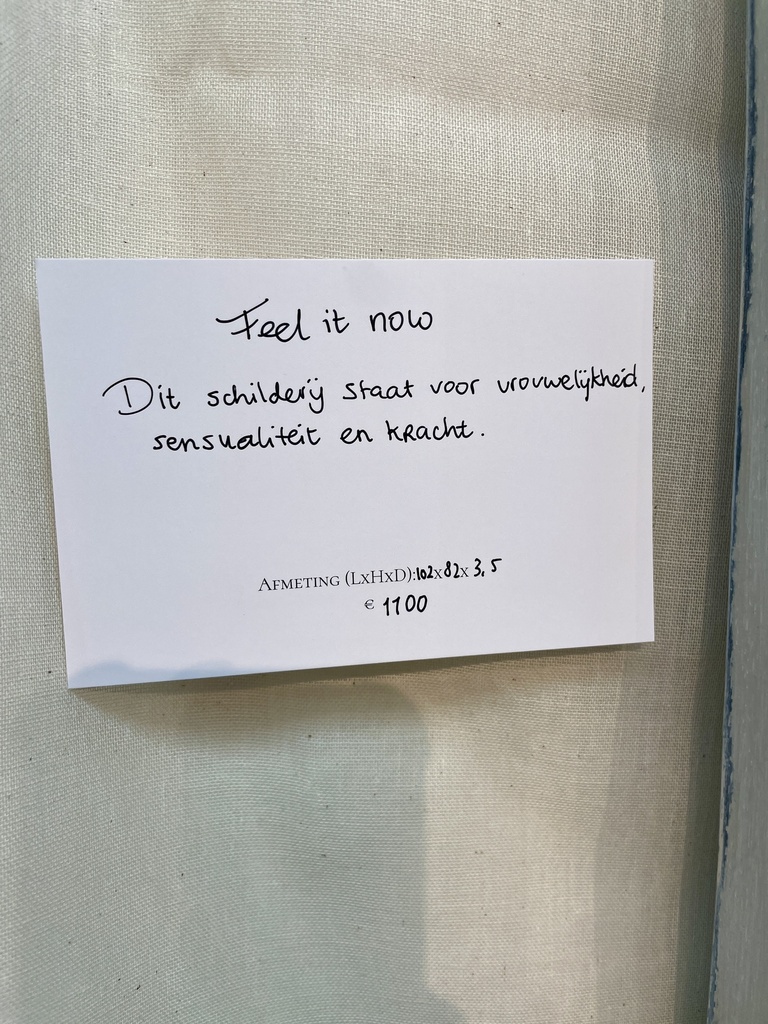 Feel it now
Dit schilderij staat voor vrouwelijkheid,
sensualiteit en kracht.
AFMETING (LXHXD):102x82x 3,5
€ 1100